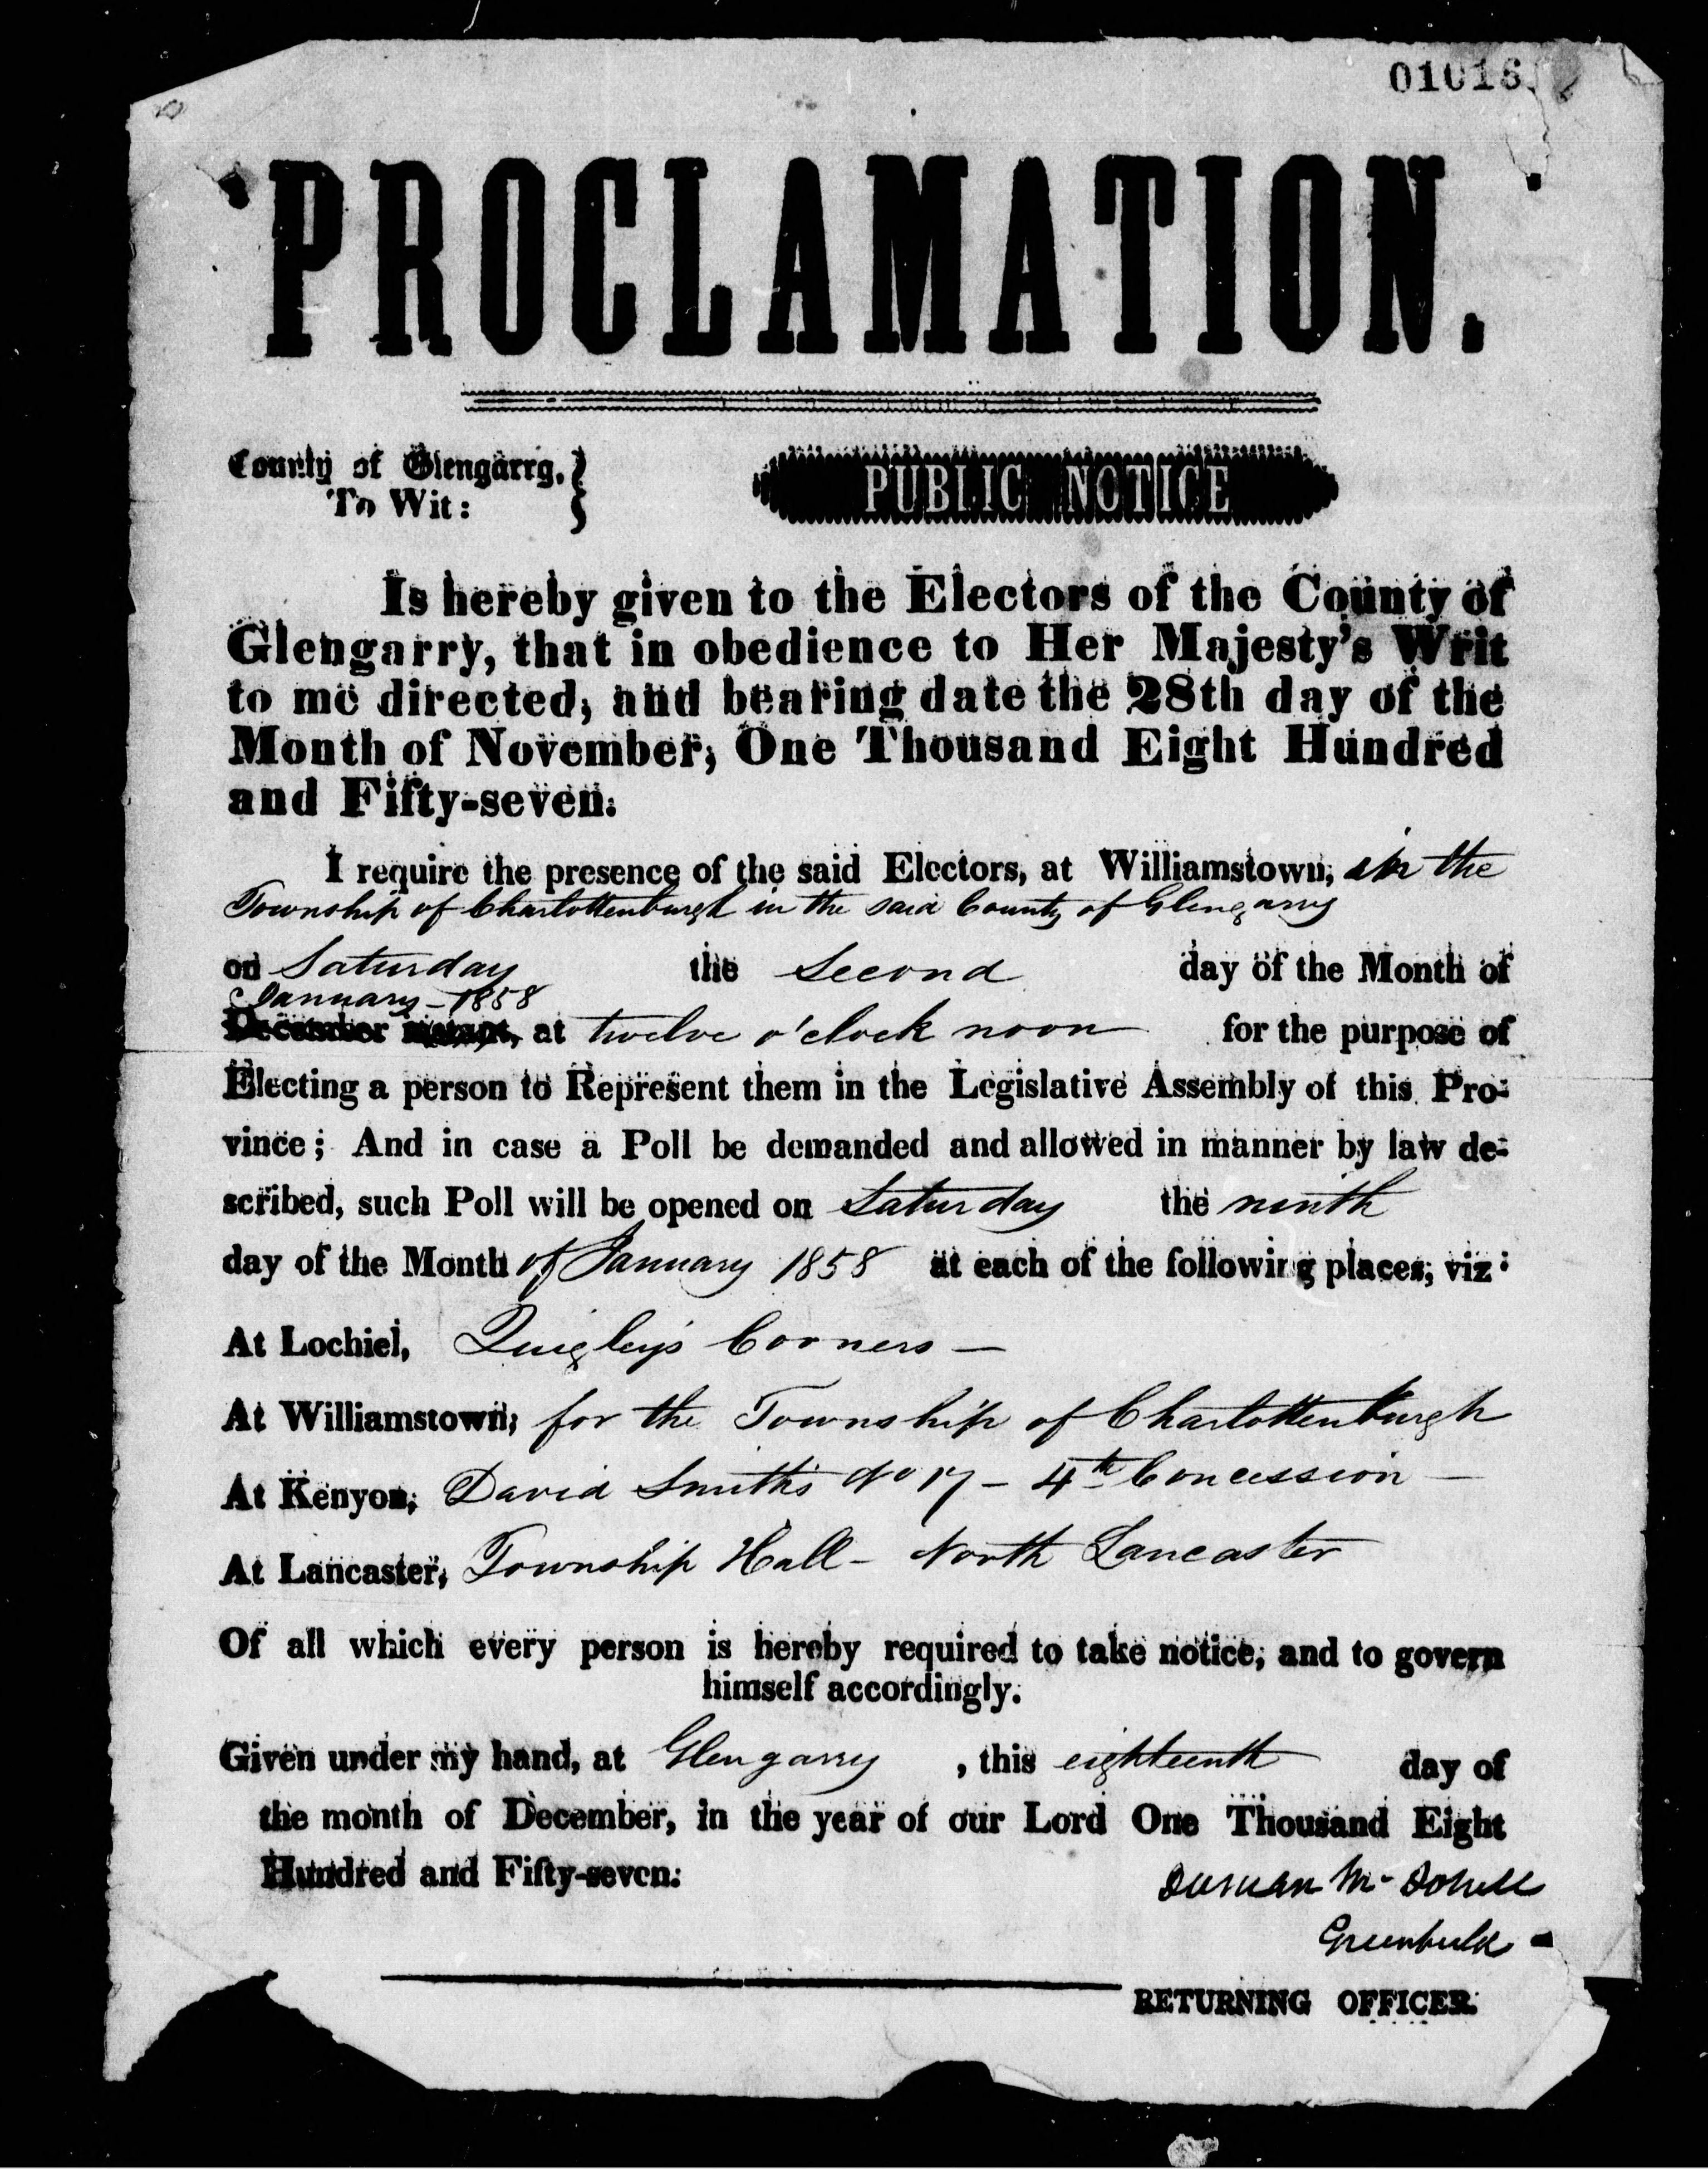 01016
PROCLAMATION.
County of Glengarry,
To Wit:
PUBLIC NOTICE
Is hereby given to the Electors of the County of
Glengarry, that in obedience to Her Majesty's Writ
to me directed, and bearing date the 28th day of the
Month of November, One Thousand Eight Hundred
and Fifty-seven.
I require the presence of the said Electors, at Williamstown, in the
Township of Charlottenburgh in the said County of Glengarry
on Saturday the Second day of the Month of
January - 1858
December instant, at twelve o'clock noon for the purpose of
Electing a person to Represent them in the Legislative Assembly of this Pro-
vince; And in case a Poll be demanded and allowed in manner by law de-
scribed, such Poll will be opened on Saturday the ninth
day of the Month of January 1858 at each of the following places, viz:
At Lochiel, Quigley's Corners —
At Williamstown, for the Township of Charlottenburgh
At Kenyon, David Smith's No 17 - 4th Concession —
At Lancaster, Township Hall - North Lancaster
Of all which every person is hereby required to take notice, and to govern
himself accordingly.
Given under my hand, at Glengarry, this eighteenth day of
the month of December, in the year of our Lord One Thousand Eight
Hundred and Fifty-seven.
Duncan Mc Donell
Greenfield
RETURNING OFFICER.